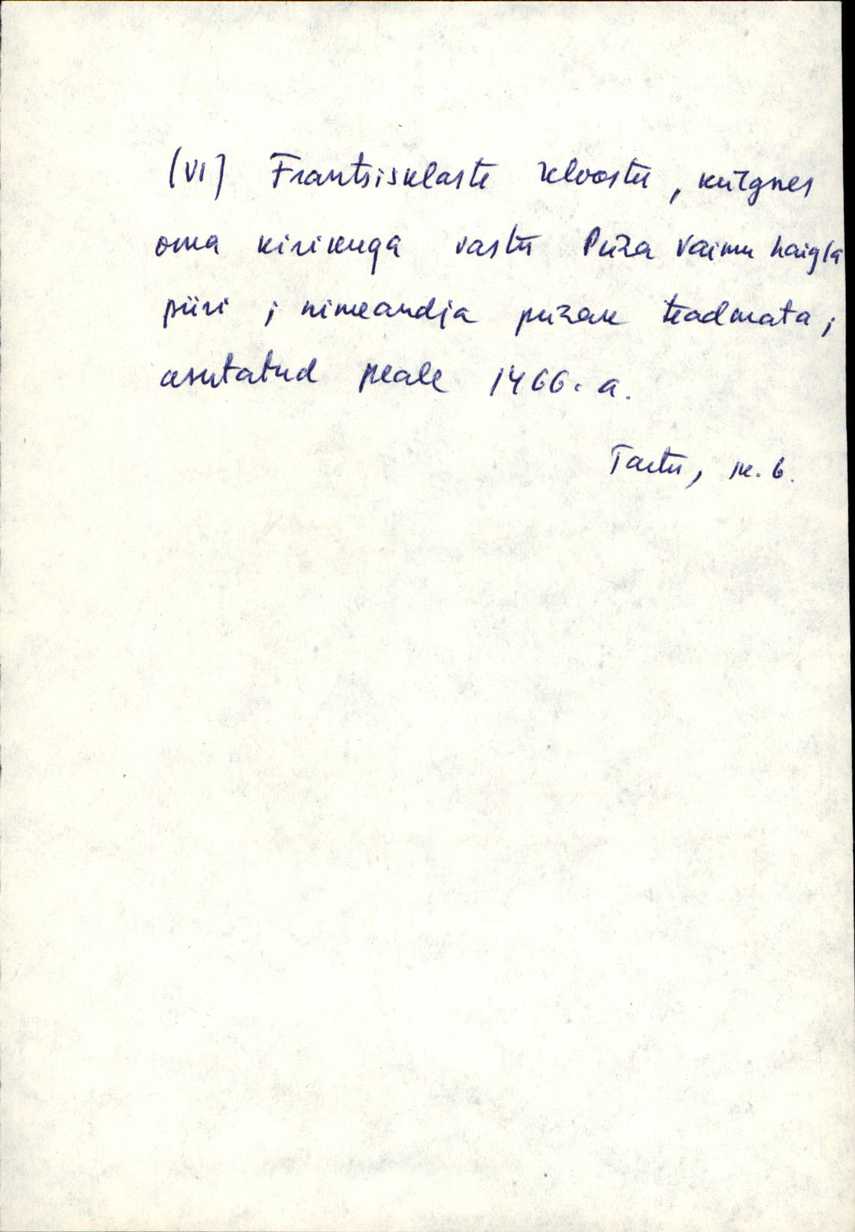 (VI) Frantsisklaste kloostri, külgnes
oma kirikuga vastu Püha Vaimu haigla
piiri ; nimeandja pühak teadmata ;
asutatud peale 1466. a.
Tartu, lk. 6.